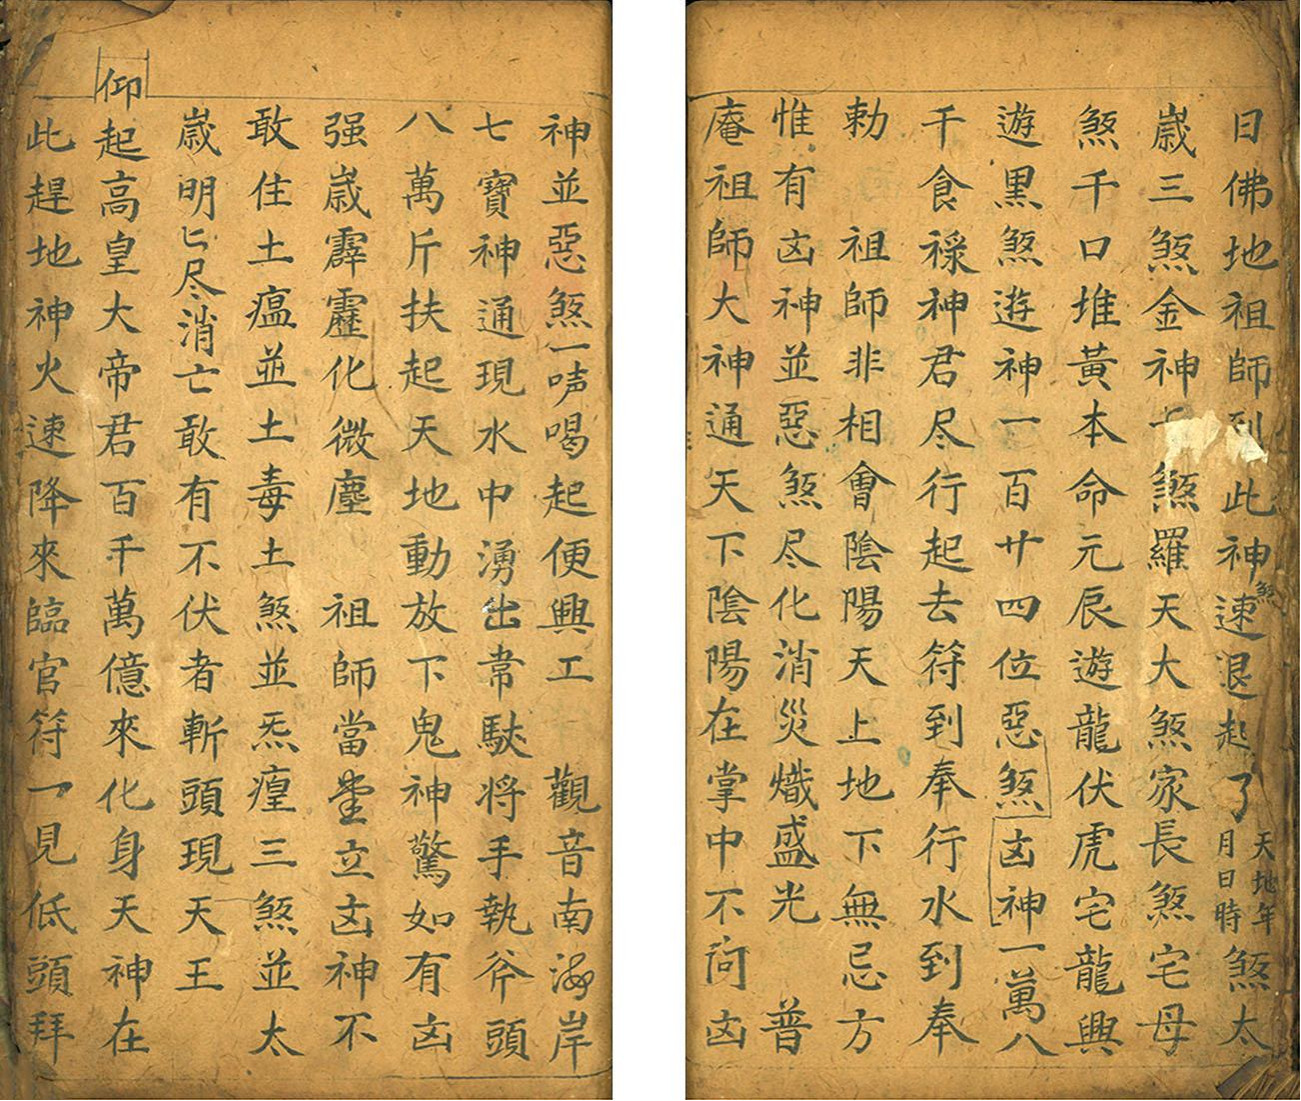 日佛地祖師到此神煞速退起了天地年月日時煞太
歳三煞金神千煞羅天大煞家長煞宅母
煞千口堆黃本命元辰遊龍伏虎宅龍興
遊黑煞遊神一百廿四位惡煞凶神一萬八
千食祿神君尽行起去符到奉行水到奉
勅　祖師非相會陰陽天上地下無忌方
惟有凶神並惡煞尽化消災熾盛光　普
庵祖師大神通天下陰陽在掌中不问凶
神並惡煞一声喝起便興工　觀音南海岸
七寶神通現水中湧出常馱将手執斧頭
八萬斤扶起天地動放下鬼神驚如有凶
强歳霹靂化微塵　祖師當堂立凶神不
敢住土瘟並土毒土煞並炁瘟三煞並太
歳明匕尽消亡敢有不伏者斬頭現天王
仰起高皇大帝君百千萬億來化身天神在
此趕地神火速降來臨官符一見低頭拜